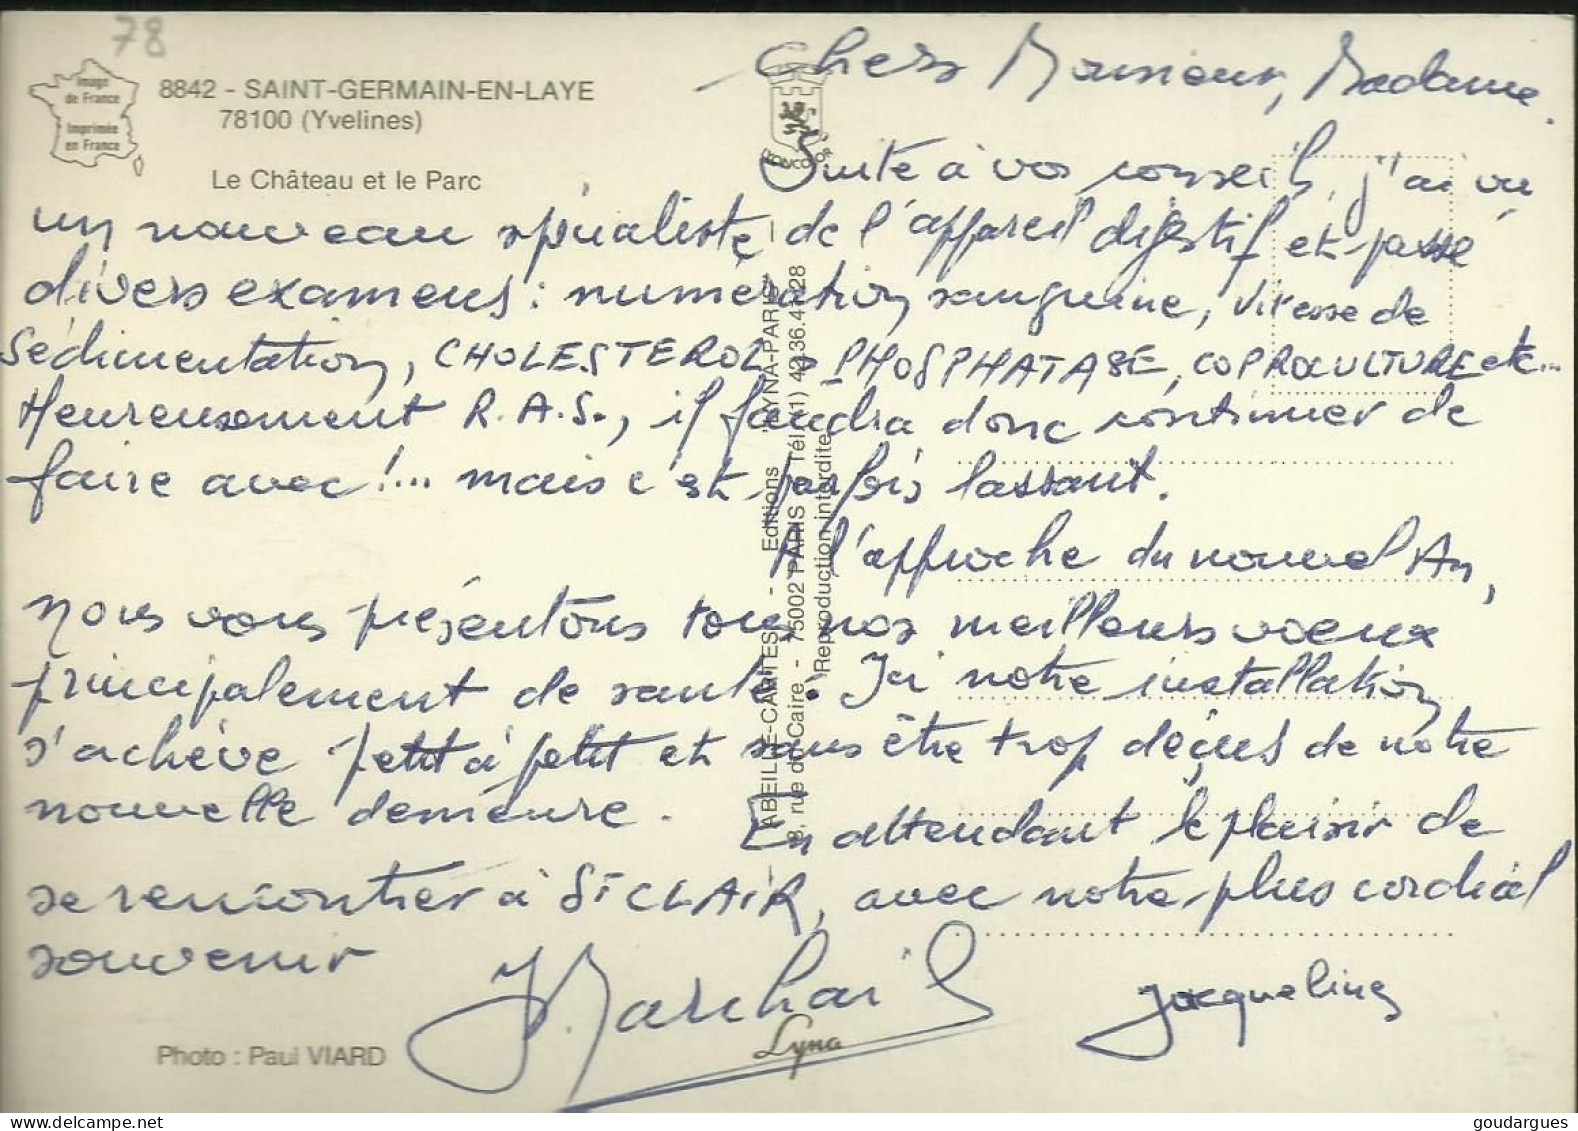 78
Image
de France
Imprimée
en France
8842 - SAINT-GERMAIN-EN-LAYE
78100 (Yvelines)
Le Château et le Parc
Chers Monsieur, Madame.
Suite à vos conseils, j'ai vu
un nouveau spécialiste de l'appareil digestif et passé
divers examens : numération sanguine, vitesse de
sédimentation, CHOLESTEROL, PHOSPHATASE, COPROCULTURE etc...
Heureusement R.A.S., il faudra donc continuer de
faire avec !... mais c'est parfois lassant.
A l'approche du nouvel An,
nous vous présentons tous nos meilleurs voeux
principalement de santé. Ici notre installation
s'achève petit à petit et sans être trop déçus de notre
nouvelle demeure.
En attendant le plaisir de
se rencontrer à St CLAIR, avec notre plus cordial
souvenir
J. Marchail
Jacqueline
Photo : Paul VIARD
Lyna
ABEILLE-CARTES - Editions "LYNA-PARIS"
8, rue du Caire - 75002 PARIS Tél. (1) 42.36.41.28
Reproduction interdite
goudargues